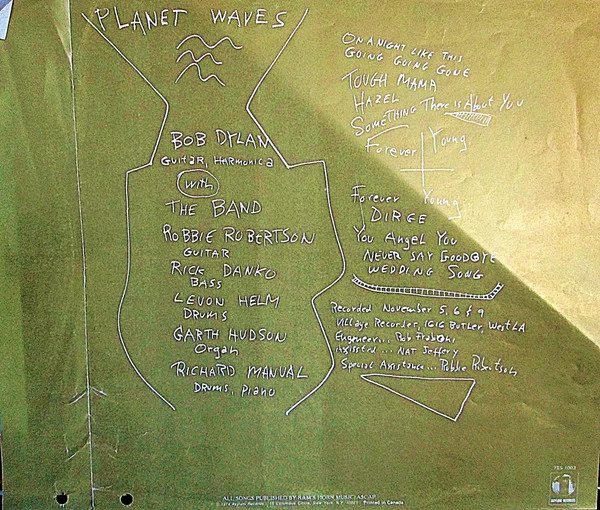 PLANET WAVES
BOB DYLAN
GUITAR, HARMONICA
with
THE BAND
ROBBIE ROBERTSON
GUITAR
RICK DANKO
BASS
LEVON HELM
DRUMS
GARTH HUDSON
Organ
RICHARD MANUAL
DRUMS, PIANO
ON A NIGHT LIKE THIS
GOING GOING GONE
TOUGH MAMA
HAZEL
SOMETHING There is About You
Forever Young
Forever Young
DIRGE
You Angel You
NEVER SAY GOODBYE
WEDDING SONG
Recorded November 5, 6 & 9
Village Recorder, 1616 BUTLER, West LA
Engineer... Rob Fraboni
Assissted... NAT Jeffery
Special Assistance... Robbie Robertson
ALL SONGS PUBLISHED BY RAM'S HORN MUSIC/ASCAP.
© 1974 Asylum Records, 15 Columbus Circle, New York, N.Y. 10023 Printed in Canada
7ES 1003
ASYLUM RECORDS